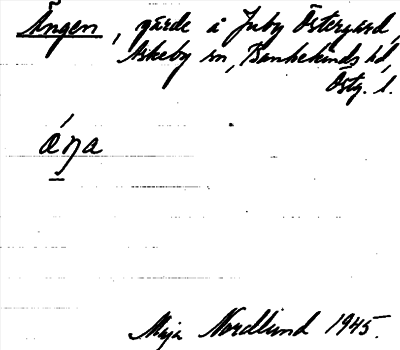 Ängen, gärde å Juby Östergård,
Askeby sn, Bankekinds hd,
Östg. l.
áŋa
Maja Nordlund 1945.